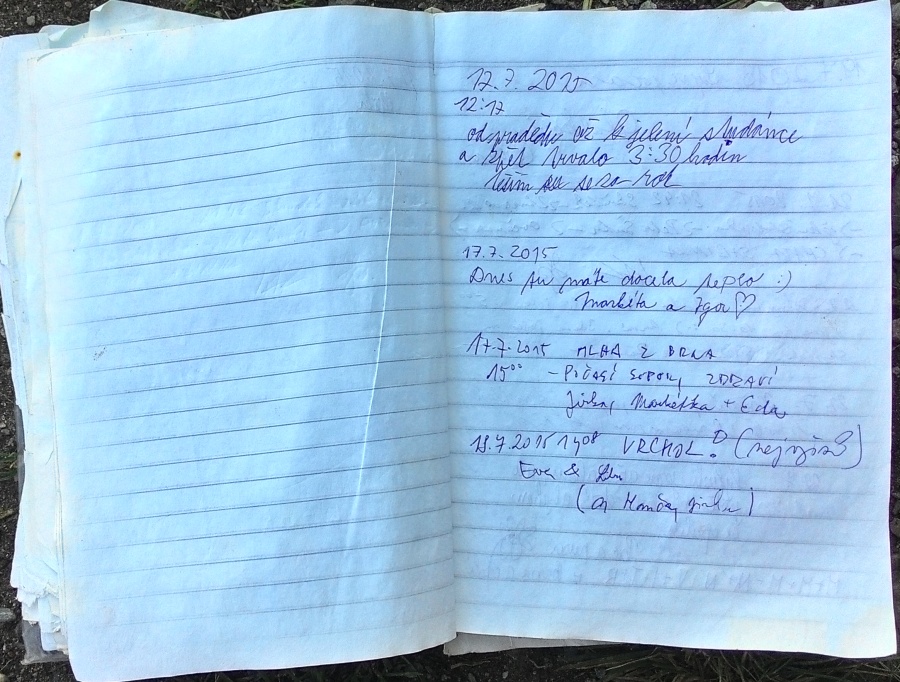 12.7. 2015
12:17
od pradědu až k jelení studánce
a zpět trvalo 3:30 hodin
těším se za rok
17.7. 2015
Dnes tu máte docela teplo :)
Markéta a Igor ♡
17.7.2015 MLHA Z BRNA
15⁰⁰ - POČASÍ ZDRAVÍ
Jirka, Markétka + Eda
18.7.2015 14⁰⁸ VRCHOL! (nejvyšší)
Eva &
(a Monča, Jirka)